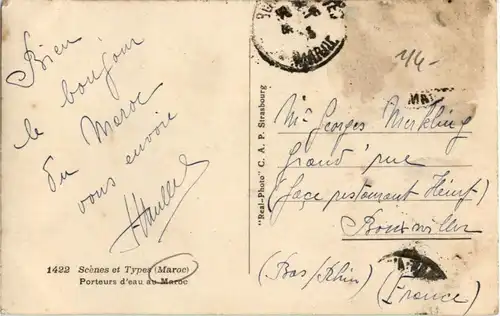 Bien
le bonjour
Du Maroc
vous envoie
1422 Scènes et Types (Maroc)
Porteurs d'eau au Maroc
"Real-Photo" C. A. P. Strasbourg
MAROC
114-
MA
Mr Georges Merkling
Grand' rue
(face restaurant Heinf)
Bouxwiller
(Bas/Rhin)
(France)